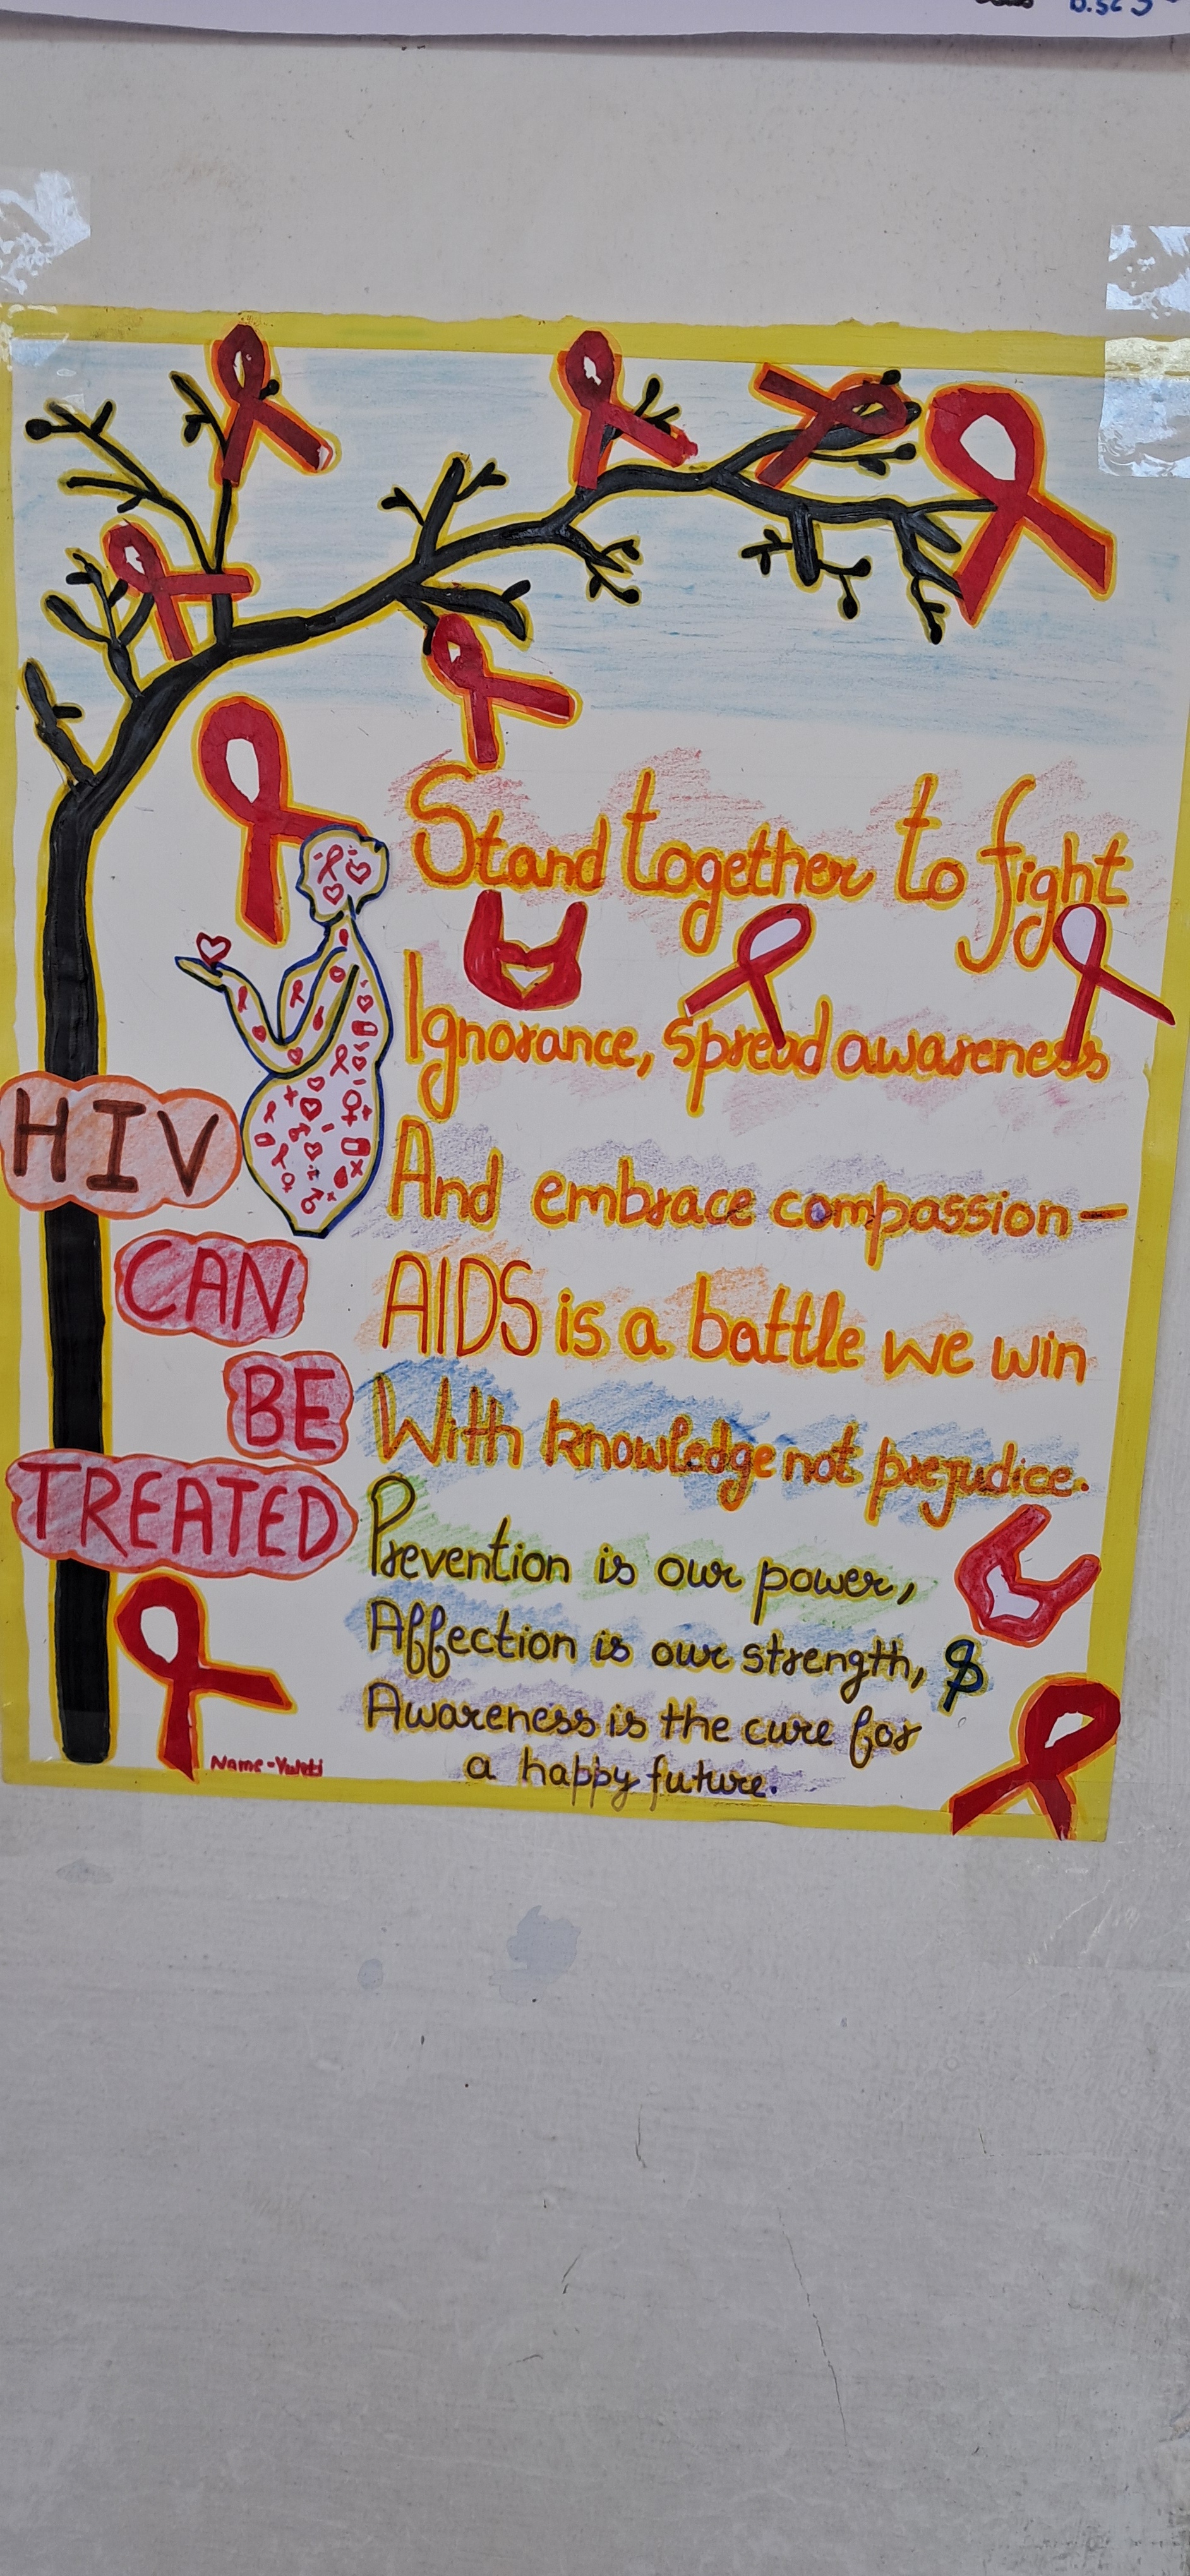 B.Sc 3
Stand together to fight
Ignorance, spread awareness
And embrace compassion-
AIDS is a battle we win
With knowledge not prejudice.
Prevention is our power,
Affection is our strength, &
Awareness is the cure for
a happy future.
HIV
CAN
BE
TREATED
Name-